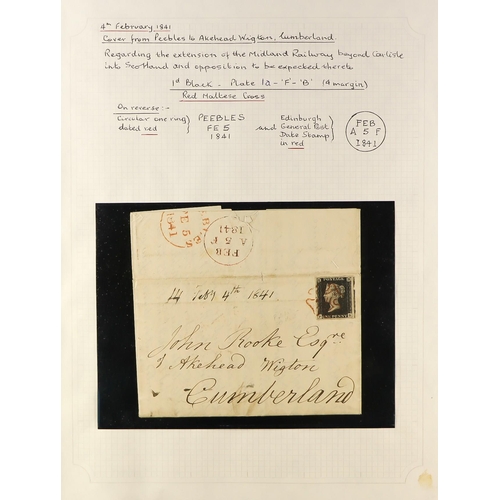 4th February 1841
Cover from Peebles to Akehead Wigton, Cumberland.
Regarding the extension of the Midland Railway beyond Carlisle
into Scotland and opposition to be expected thereto
1d Black - Plate 1a - 'F' - 'B' (4 margin)
Red Maltese Cross
On reverse :-
Circular one ring
dated red
PEEBLES
FE 5
1841
and
Edinburgh
General Post
Date Stamp
in red
FEB
A 5 F
1841
FE 5
1841
FEB
A 5 F
1841
POSTAGE
ONE PENNY
14 Feby 4th 1841
John Rooke Esqre
Akehead Wigton
Cumberland